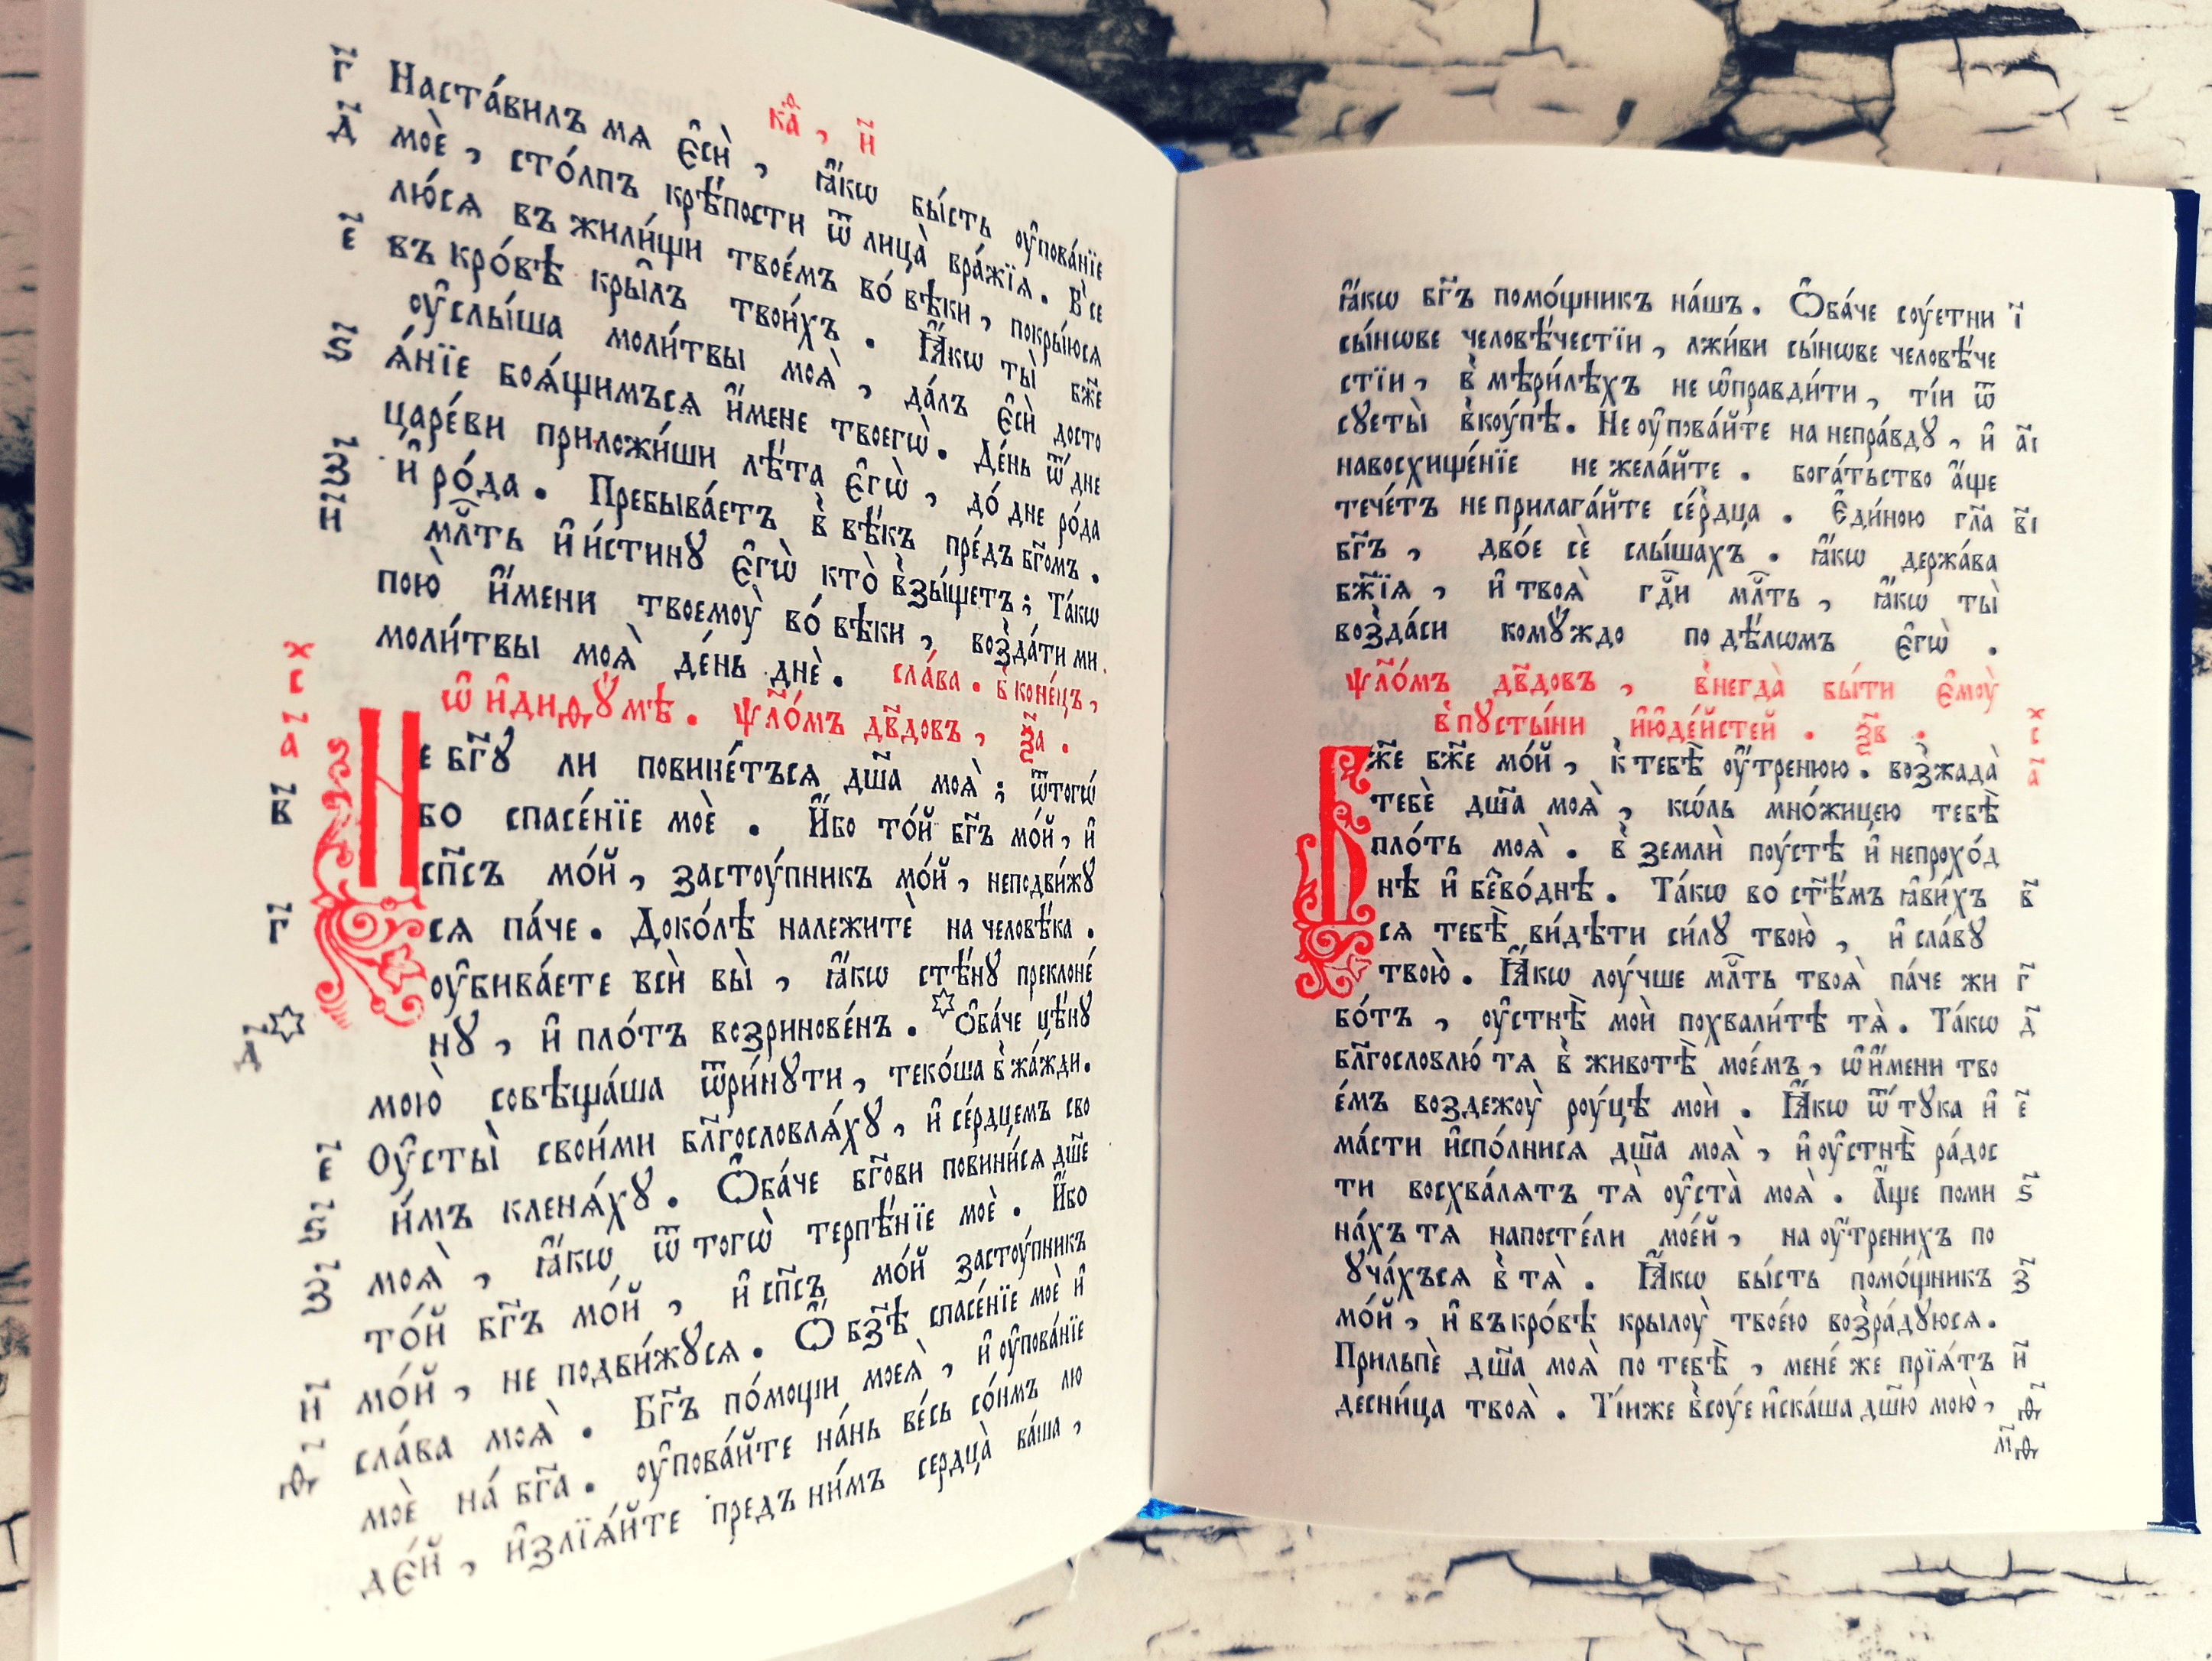 ка҃ , и҃
г҃ Наста́вилъ мѧ є҆сѝ , ꙗ҆́кѡ бы́сть ᲂу҆пова́нїе
д҃ моѐ , сто́лпъ крѣ́пости ѿ лица̀ вра́жїѧ . В̾се
лю́сѧ въ жили́щи твое́мъ во́ вѣки , покры́юсѧ
е҃ въ кро́вѣ кры̑лъ твои́хъ . Ꙗ҆́кѡ ты̀ бж҃е
ᲂу҆слы́ша моли́твы моѧ̀ , да́лъ є҆сѝ досто
ѕ҃ ѧ́нїе боѧ́щимъсѧ и҆́мене твоегѡ̀ . Де́нь ѿ дне
царе́ви приложи́ши лѣ́та є҆гѡ̀ , до́ дне ро́да
з҃ и҆ ро́да . Пребыва́етъ в̾ вѣ́къ пре́дъ бг҃омъ .
и҃ мл҇ть и҆ и́стинꙋ є҆гѡ̀ кто̀ в̾зы́щетъ ; Та́кѡ
пою̀ и҆́мени твоемоу̀ во́ вѣки , воз̾да́ти ми
моли́твы моѧ̀ де́нь днѐ . сла́ва . в̾ коне́цъ ,
х с а҃
ѡ҆ и҆диѳꙋ́мѣ . ѱло́мъ дв҃довъ , ѯ҃а .
Не бг҃ꙋ ли повине́тъсѧ дш҃а моѧ̀ ; ѿтогѡ́
в҃ бо спасе́нїе моѐ . И҆́бо то́й бг҃ъ мо́й , и҆
сп҃съ мо́й , застоу́пник мо́й , неподви́жꙋ
г҃ сѧ па́че . Доко́лѣ належитѐ на человѣ́ка .
ᲂу҆бива́ете всѝ вы̀ , ꙗ҆́кѡ стѣ́нꙋ преклоне́
нꙋ , и҆ пло́тъ возринове́нъ . Ѻ҆ба́че цѣ́нꙋ
д҃ мою̀ совѣща́ша ѿри́нꙋти , теко́ша в̾ жа́жди .
Ѹ҆сты̀ свои́ми бл҃гословлѧ́хꙋ , и҆ се́рдцемъ сво
е҃ и́мъ кленѧ́хꙋ . Ѻ҆ба́че бг҃ови повини́сѧ дш҃е
ѕ҃ моѧ̀ , ꙗ҆́кѡ ѿ тогѡ̀ терпѣ́нїе моѐ . И҆́бо
з҃ то́й бг҃ъ мо́й , и҆ сп҃съ мо́й застоу́пникъ
мо́й , не подви́жꙋсѧ . Ѻ҆ бз҃ѣ спасе́нїе моѐ и҆
и҃ сла́ва моѧ̀ . Бг҃ъ по́мощи моеѧ̀ , и҆ ᲂу҆пова́нїе
моѐ на́ бг҃а . ᲂу҆пова́йте на́нь ве́сь со́нмъ лю
ѳ҃ де́й , и҆злїѧ́йте предъ ни́мъ сердца̀ ва́ша ,
ꙗ҆́кѡ бг҃ъ помо́щникъ на́шъ . Ѻ҆ба́че соу́етни і҃
сы́нѡве человѣ́честїи , лжи́ви сы́нѡве человѣ́че
стїи , в̾ мѣри́лѣхъ не ѡ҆правди́ти , ті́и ѿ
сꙋеты̀ в̾коу́пѣ . Не ᲂу҆пова́йте на непра́вдꙋ , и҆ а҃і
навосхище́нїе не жела́йте . бога́тьство а҆́ще
тече́тъ не прилага́йте се́рдца . Є҆ди́ною гл҃а в҃і
бг҃ъ , дво́е сѐ слы́шахъ . ꙗ҆́кѡ держа́ва
бж҃їѧ , и҆ твоѧ̀ гд҇и мл҇ть , ꙗ҆́кѡ ты̀
воз̾да́си комꙋ́ждо по дѣ́лѡмъ є҆гѡ̀ .
ѱл҃о́мъ дв҃довъ , в̾негда̀ бы́ти є҆моу̀
в̾ пꙋсты́ни и҆ю҆де́йстей . ѯ҃в .
х с а҃
Бж҃е бж҃е мо́й , к̾ тебѣ̀ ᲂу҆́тренюю . воз̾жада̀
тебѐ дш҃а моѧ̀ , кѡ́ль мно́жицею тебѣ̀
пло́ть моѧ̀ . в̾ землѝ поу́стѣ и҆ непрохо́д
нѣ и҆ без̾во́днѣ . Та́кѡ во ст҃ѣ́мъ ꙗ҆ви́хъ в҃
сѧ тебѣ̀ ви́дѣти си́лꙋ твою̀ , и҆ сла́вꙋ
твою̀ . Ꙗ҆́кѡ лоу́чше мл҇ть твоѧ̀ па́че жи г҃
во́тъ , ᲂу҆стнѣ̀ моѝ похвали́тѣ тѧ̀ . Та́кѡ д҃
бл҃гословлю́ тѧ в̾ животѣ̀ мое́мъ , ѡ҆ и҆́мени тво
е́мъ воздежоу̀ роу́цѣ моѝ . Ꙗ҆́кѡ ѿ тꙋка и҆ е҃
ма́сти и҆спо́лнисѧ дш҃а моѧ̀ , и҆ ᲂу҆стнѣ̀ ра́дос
ти восхва́лѧтъ тѧ̀ ᲂу҆ста̀ моѧ̀ . А҆́ще поми ѕ҃
на́хъ тѧ напосте́ли мое́й , на ᲂу҆́тренихъ по
ꙋча́хъсѧ в̾ тѧ̀ . Ꙗ҆́кѡ бы́сть помо́щникъ з҃
мо́й , и҆ въ кро́вѣ крылоу̀ твое́ю воз̾ра́дꙋюсѧ .
Прильпѐ дш҃а моѧ̀ по тебѣ̀ , мене́ же прїѧ́тъ и҃
десни́ца твоѧ̀ . Ті́иже в̾соу́е и҆ска́ша дш҃ю мою̀ , ѳ҃
м҃ѳ